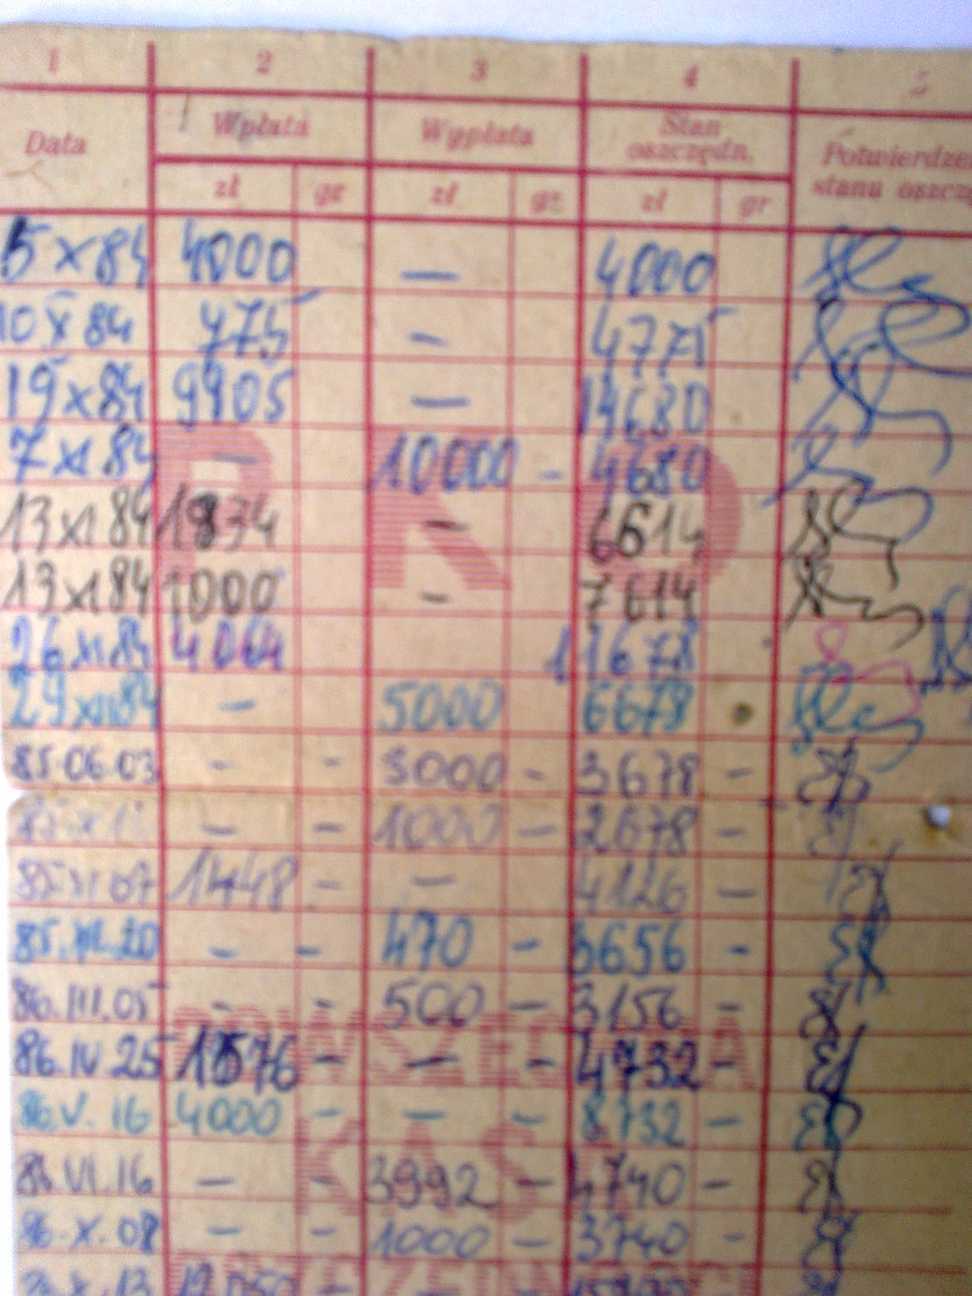 1 2 3 4 5
Data Wpłata Wypłata Stan oszczędn. Potwierdze
stanu oszcz
zł gr zł gr zł gr
5 X 84 4000 — 4000
10 X 84 775 — 4775
19 X 84 9905 — 14680
7 XI 84 — 10000 - 4680
13 XI 84 1934 — 6614
13 XI 84 1000 — 7614
26 XI 84 4064 11678
29 XII 84 — 5000 6678
85.06.03 - - 3000 - 3678 -
— — 1000 — 2678 -
85.XI.07 1448 - — 4126 —
85.XII.20 - - 470 - 3656 -
86.III.05 - - 500 — 3156 -
86.IV.25 1576 - — - 4732 -
86.V.16 4000 - — - 8732 —
86.VI.16 — - 3992 — 4740 —
86.X.08 — - 1000 — 3740 -
PKO
POWSZECHNA
KASA